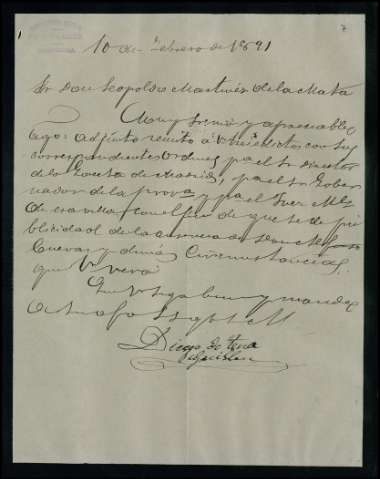 10 de Febrero de 1891
Sr Don Leopoldo Martinez de la Mata
Muy Sr mio y apreciable
adjunto remito á V tres edictos con sus
correspondientes ordenes pa el Sr director
de la Gaceta de Madrid, pa el Sr Gober
nador de la prova y pa el Juez Ml
de con el fin de que se de pu
blicidad de la de Don
Cuevas y demas Circunstancias
que V vera
Que V siga bien y mande á
su afmo S S q b s m
Diego de Tena